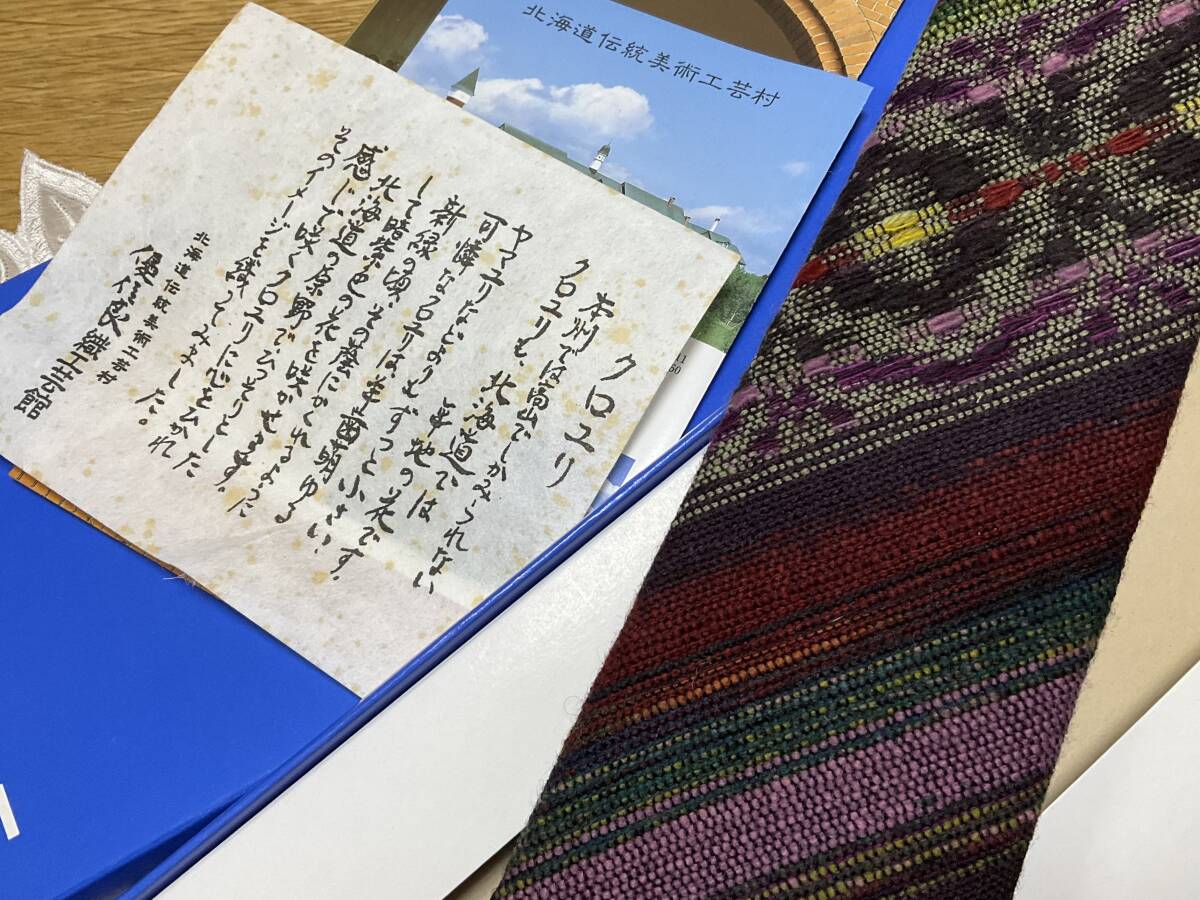 北海道伝統美術工芸村
クロユリ
本州では高山でしかみられない
クロユリも、北海道では
平地の花です。
ヤマユリなどよりもずっと小さい、
可憐なクロユリは、草萌ゆる
新緑の頃、その蔭にかくれるように
して暗紫色の花を咲かせます。
北海道の原野でひっそりとした
感じで咲くクロユリに心をひかれ
そのイメージを織ってみました。
北海道伝統美術工芸村
優佳良織工芸館
11
50